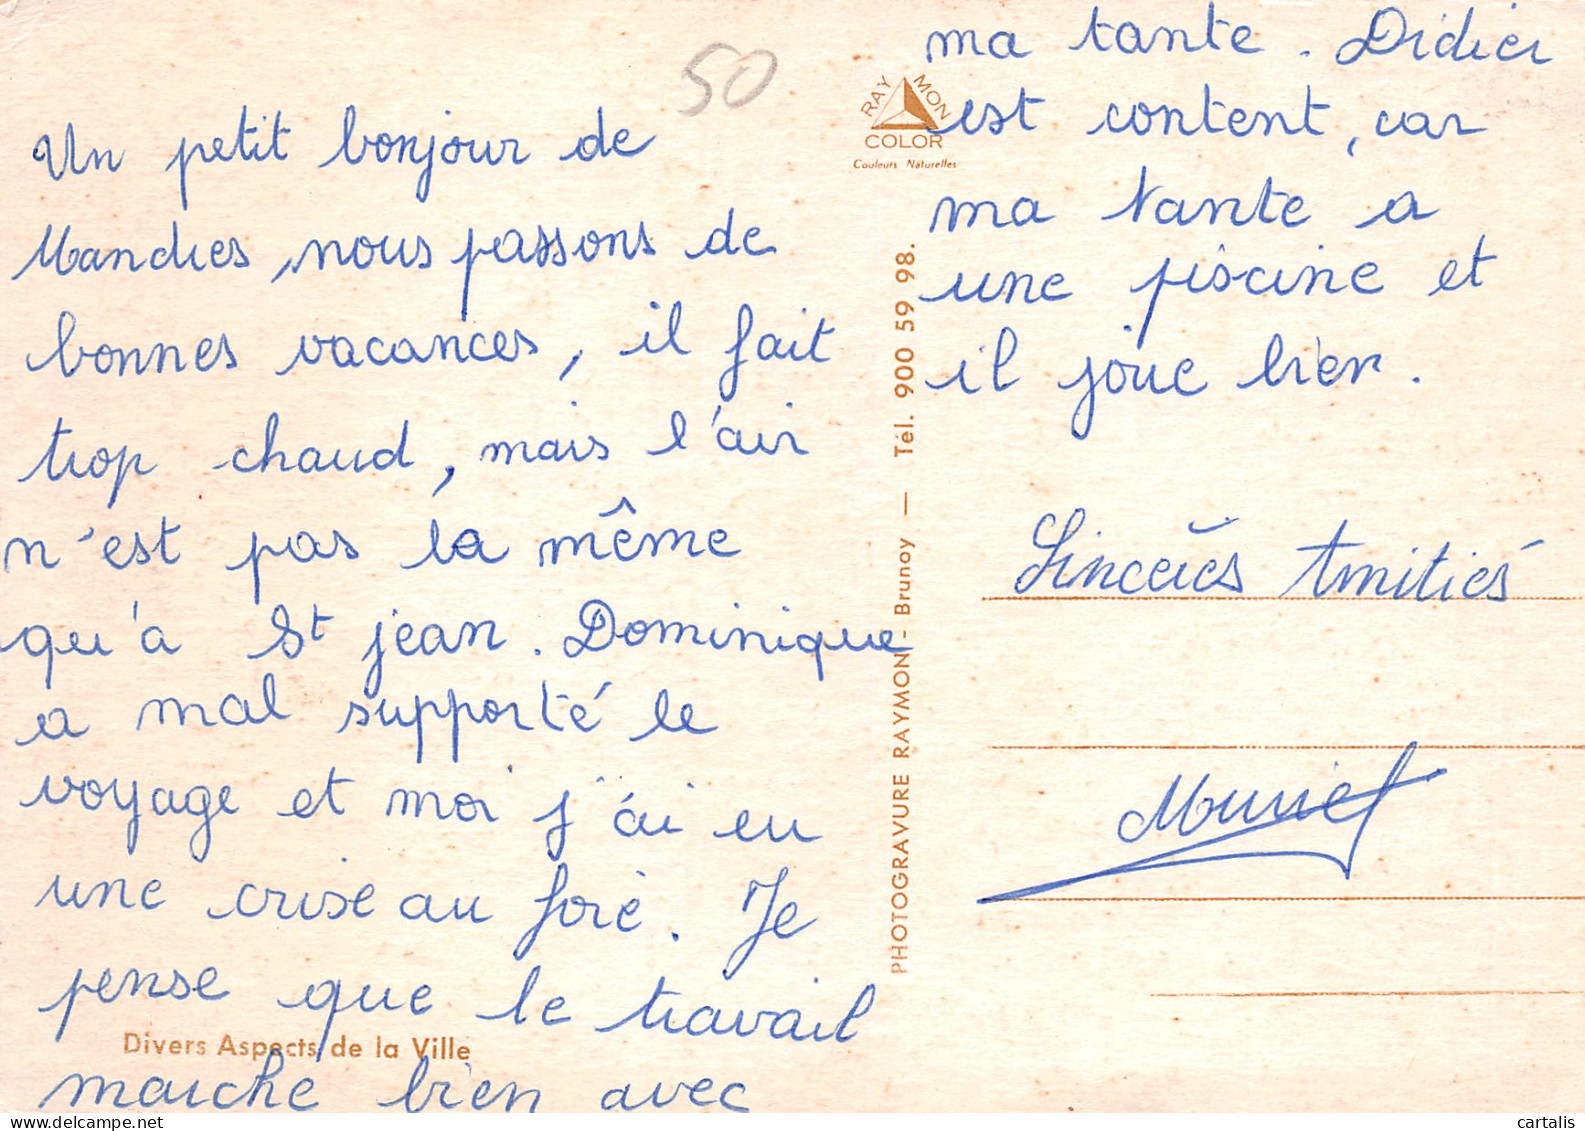 50
Un petit bonjour de
Mandres, nous passons de
bonnes vacances, il fait
trop chaud, mais l'air
n'est pas la même
qu'à St jean. Dominique
a mal supporté le
voyage et moi j'ai eu
une crise au foie. Je
pense que le travail
marche bien avec
Divers Aspects de la Ville
PHOTOGRAVURE RAYMON - Brunoy — Tél. 900 59 98.
RAYMON
COLOR
Couleurs Naturelles
ma tante. Didier
est content, car
ma tante a
une piscine et
il joue bien.
Sincères Amitiés
Muriel
delcampe.net
cartalis